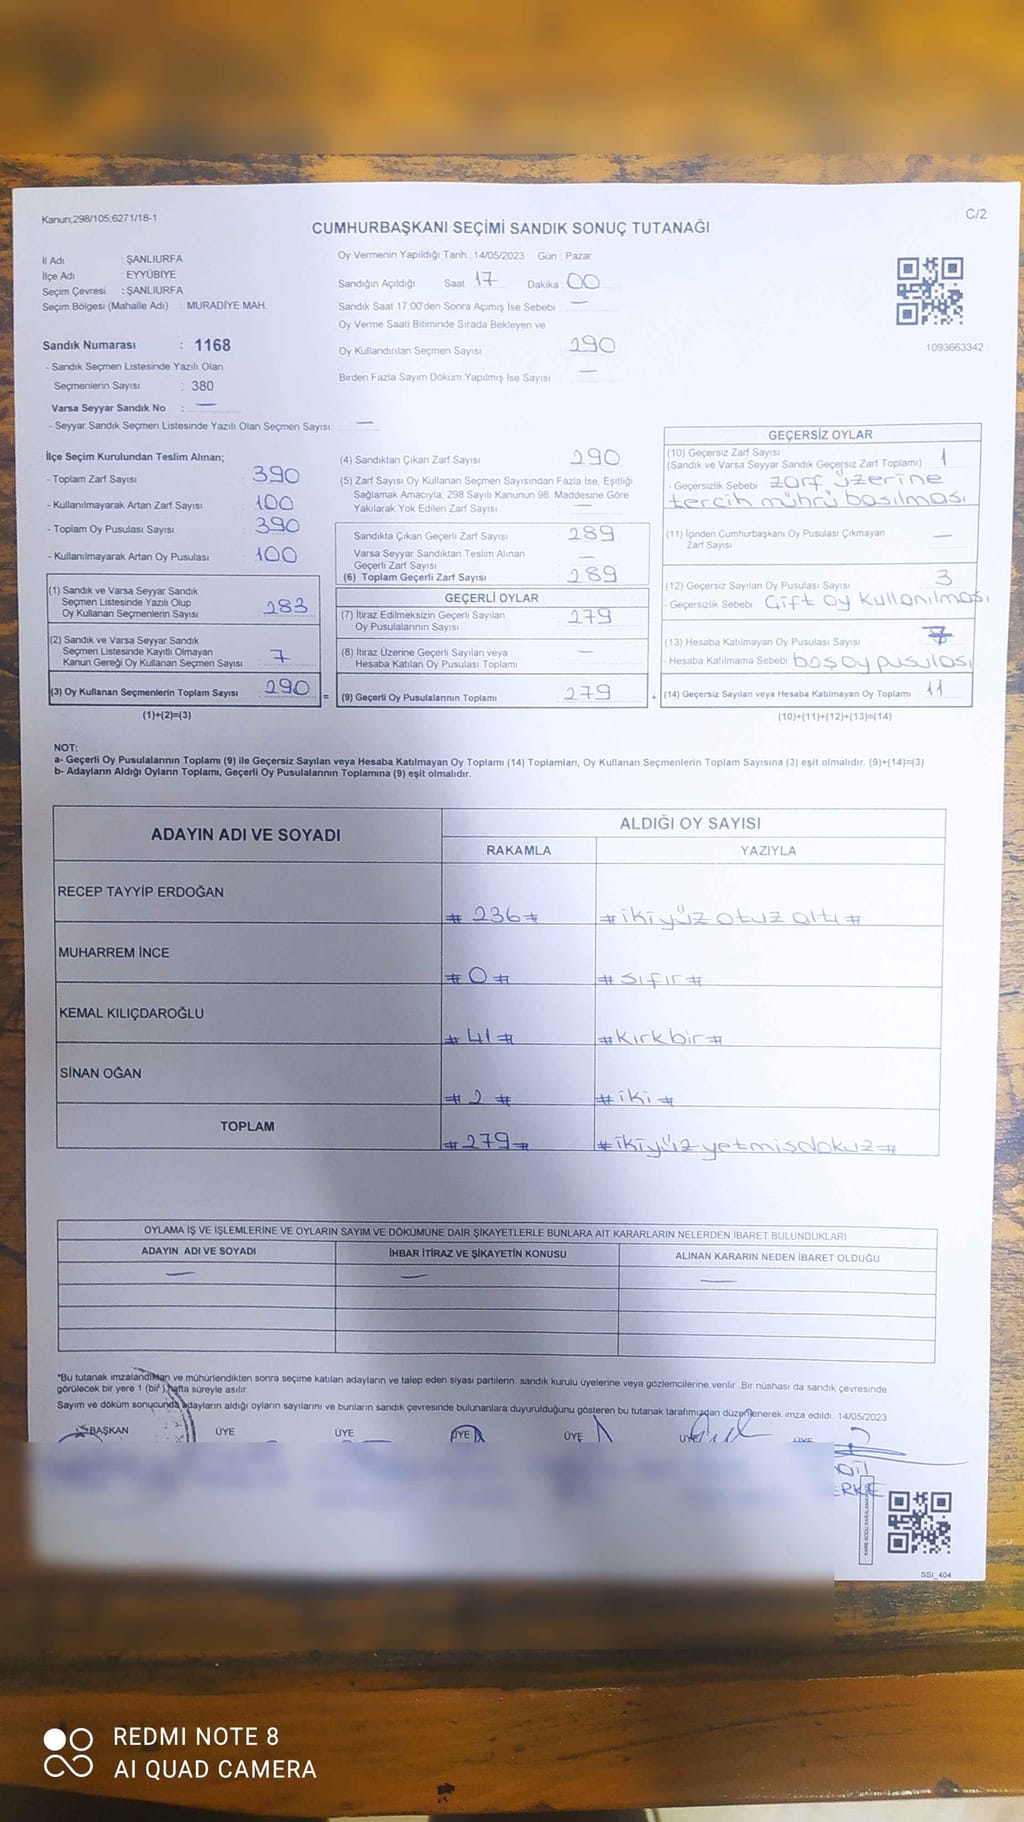 Kanun;298/105,6271/18-1
C/2
CUMHURBAŞKANI SEÇİMİ SANDIK SONUÇ TUTANAĞI
İl Adı : ŞANLIURFA
İlçe Adı : EYYÜBİYE
Seçim Çevresi : ŞANLIURFA
Seçim Bölgesi (Mahalle Adı) : MURADİYE MAH.
Sandık Numarası : 1168
- Sandık Seçmen Listesinde Yazılı Olan
Seçmenlerin Sayısı : 380
Varsa Seyyar Sandık No : —
- Seyyar Sandık Seçmen Listesinde Yazılı Olan Seçmen Sayısı: —
Oy Vermenin Yapıldığı Tarih : 14/05/2023 Gün : Pazar
Sandığın Açıldığı Saat 17 Dakika 00
Sandık Saat 17:00'den Sonra Açımış İse Sebebi —
Oy Verme Saati Bitiminde Sırada Bekleyen ve
Oy Kullandırılan Seçmen Sayısı 290
Birden Fazla Sayım Döküm Yapılmış İse Sayısı —
1093663342
İlçe Seçim Kurulundan Teslim Alınan;
- Toplam Zarf Sayısı 390
- Kullanılmayarak Artan Zarf Sayısı 100
- Toplam Oy Pusulası Sayısı 390
- Kullanılmayarak Artan Oy Pusulası 100
(1) Sandık ve Varsa Seyyar Sandık
Seçmen Listesinde Yazılı Olup
Oy Kullanan Seçmenlerin Sayısı 283
(2) Sandık ve Varsa Seyyar Sandık
Seçmen Listesinde Kayıtlı Olmayan
Kanun Gereği Oy Kullanan Seçmen Sayısı 7
(3) Oy Kullanan Seçmenlerin Toplam Sayısı 290 =
(1)+(2)=(3)
(4) Sandıktan Çıkan Zarf Sayısı 290
(5) Zarf Sayısı Oy Kullanan Seçmen Sayısından Fazla İse, Eşitliği
Sağlamak Amacıyla; 298 Sayılı Kanunun 98. Maddesine Göre
Yakılarak Yok Edilen Zarf Sayısı —
Sandıkta Çıkan Geçerli Zarf Sayısı 289
Varsa Seyyar Sandıktan Teslim Alınan
Geçerli Zarf Sayısı —
(6) Toplam Geçerli Zarf Sayısı 289
GEÇERLİ OYLAR
(7) İtiraz Edilmeksizin Geçerli Sayılan
Oy Pusulalarının Sayısı 279
(8) İtiraz Üzerine Geçerli Sayılan veya
Hesaba Katılan Oy Pusulası Toplamı —
(9) Geçerli Oy Pusulalarının Toplamı 279 +
GEÇERSİZ OYLAR
(10) Geçersiz Zarf Sayısı
(Sandık ve Varsa Seyyar Sandık Geçersiz Zarf Toplamı) 1
- Geçersizlik Sebebi zarf üzerine
tercih mührü basılması
(11) İçinden Cumhurbaşkanı Oy Pusulası Çıkmayan
Zarf Sayısı —
(12) Geçersiz Sayılan Oy Pusulası Sayısı 3
- Geçersizlik Sebebi Çift oy kullanılması
(13) Hesaba Katılmayan Oy Pusulası Sayısı 7
- Hesaba Katılmama Sebebi boş oy pusulası
(14) Geçersiz Sayılan veya Hesaba Katılmayan Oy Toplamı 11
(10)+(11)+(12)+(13)=(14)
NOT:
a- Geçerli Oy Pusulalarının Toplamı (9) ile Geçersiz Sayılan veya Hesaba Katılmayan Oy Toplamı (14) Toplamları, Oy Kullanan Seçmenlerin Toplam Sayısına (3) eşit olmalıdır. (9)+(14)=(3)
b- Adayların Aldığı Oyların Toplamı, Geçerli Oy Pusulalarının Toplamına (9) eşit olmalıdır.
ADAYIN ADI VE SOYADI
ALDIĞI OY SAYISI
RAKAMLA YAZIYLA
RECEP TAYYİP ERDOĞAN # 236 # # ikiyüz otuz altı #
MUHARREM İNCE # 0 # # sıfır #
KEMAL KILIÇDAROĞLU # 41 # # Kırk bir #
SİNAN OĞAN # 2 # # iki #
TOPLAM # 279 # # ikiyüz yetmiş dokuz #
OYLAMA İŞ VE İŞLEMLERİNE VE OYLARIN SAYIM VE DÖKÜMÜNE DAİR ŞİKAYETLERLE BUNLARA AİT KARARLARIN NELERDEN İBARET BULUNDUKLARI
ADAYIN ADI VE SOYADI İHBAR İTİRAZ VE ŞİKAYETİN KONUSU ALINAN KARARIN NEDEN İBARET OLDUĞU
— — —
*Bu tutanak imzalandıktan ve mühürlendikten sonra seçime katılan adayların ve talep eden siyasi partilerin sandık kurulu üyelerine veya gözlemcilerine verilir. Bir nüshası da sandık çevresinde
görülecek bir yere 1 (bir) hafta süreyle asılır.
Sayım ve döküm sonucunda adayların aldığı oyların sayılarını ve bunların sandık çevresinde bulunanlara duyurulduğunu gösteren bu tutanak tarafımızdan düzenlenerek imza edildi. 14/05/2023
BAŞKAN ÜYE ÜYE ÜYE ÜYE ÜYE ÜYE
SSİ_404
REDMI NOTE 8
AI QUAD CAMERA